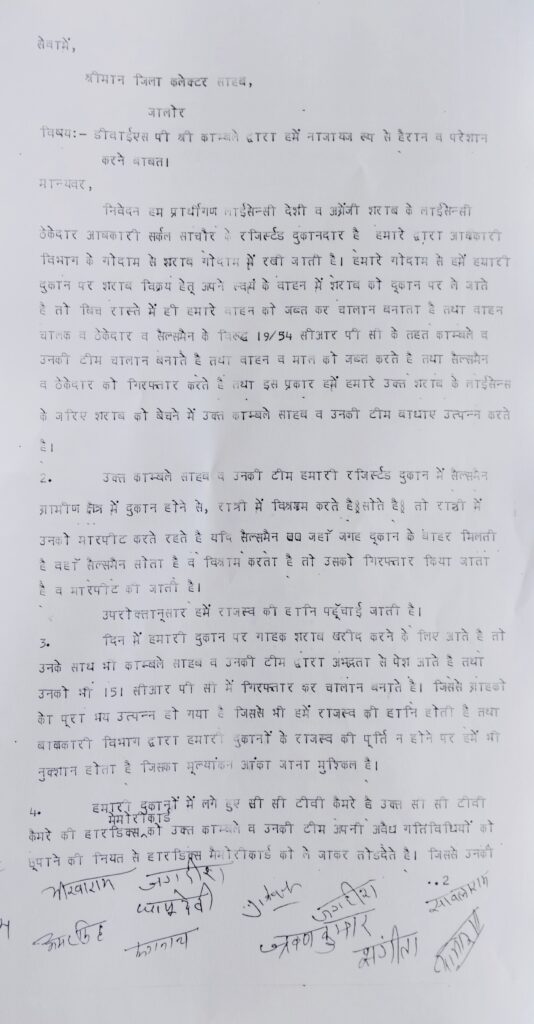 सेवामें,
श्रीमान जिला कलेक्टर साहब,
जालोर
विषय:- डीवाईएस पी श्री काम्बले द्वारा हमें नाजायज रूप से हैरान व परेशान
करने बाबत।
मान्यवर,
निवेदन हम प्रार्थीगण लाईसेन्सी देशी व अंग्रेजी शराब के लाईसेन्सी
ठेकेदार आबकारी सर्कल सांचौर के रजिस्टर्ड दुकानदार है हमारे द्वारा आबकारी
विभाग के गोदाम से शराब गोदाम में रखी जाती है। हमारे गोदाम से हमें हमारी
दुकान पर शराब विक्रय हेतू अपने स्वयं के वाहन में शराब को दूकान पर ले जाते
है तो बिच रास्ते में ही हमारे वाहन को जब्त कर चालान बनाता है तथा वाहन
चालक व ठेकेदार व सैल्समैन के विरुद्ध 19/54 सीआर पी सी के तहत काम्बले व
उनकी टीम चालान बनाते है तथा वाहन व माल को जब्त करते है तथा सैल्समैन
व ठेकेदार को गिरफ्तार करते है तथा इस प्रकार हमें हमारे उक्त शराब के लाईसेन्स
के जरिए शराब को बेचने में उक्त काम्बले साहब व उनकी टीम बाधाए उत्पन्न करते
है।
2. उक्त काम्बले साहब व उनकी टीम हमारी रजिस्टर्ड दुकान में सैल्समैन
ग्रामीण क्षेत्र में दुकान होने से, रात्री में विश्राम करते है सोते है तो रात्री में
उनको मारपीट करते रहते है यदि सैल्समैन जहाँ जगह दूकान के बाहर मिलती
है वहाँ सैल्समैन सोता है व विश्राम करता है तो उसको गिरफ्तार किया जाता
है व मारपीट की जाती है।
उपरोक्तानुसार हमें राजस्व की हानि पहूँचाई जाती है।
3. दिन में हमारी दुकान पर गाहक शराब खरीद करने के लिए आते है तो
उनके साथ भी काम्बले साहब व उनकी टीम द्वारा अभद्रता से पेश आते है तथा
उनको भी 151 सीआर पी सी में गिरफ्तार कर चालान बनाते है। जिससे ग्राहको
का पूरा भय उत्पन्न हो गया है जिससे भी हमें राजस्व की हानि होती है तथा
बाबकारी विभाग द्वारा हमारी दुकानों के राजस्व की पूर्ति न होने पर हमें भी
नुक्शान होता है जिसका मूल्यांकन आंका जाना मुश्किल है।
4. हमारी दुकानों में लगे हुए सी सी टीवी कैमरे है उक्त सी सी टीवी
मेमोरीकार्ड
कैमरे की हारडिक्स को उक्त काम्बले व उनकी टीम अपनी अवैध गतिविधियों को
छूपाने की नियत से हारडिक्स मैमोरीकार्ड को ले जाकर तोडदेते है। जिससे उनकी
..2
भीखाराम जगदीश
जगदीश सावलाराम
श्रवणकुमार
संगीता